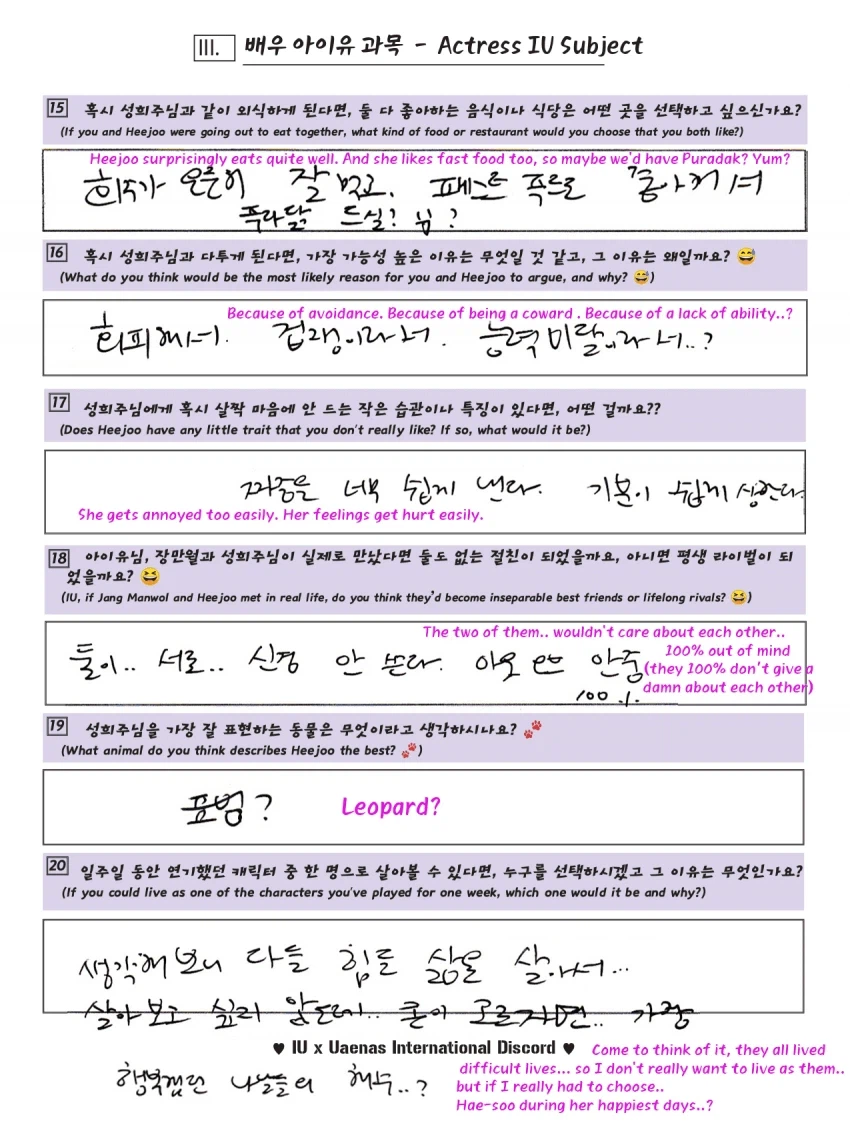 III. 배우 아이유 과목 - Actress IU Subject
15 혹시 성희주님과 같이 외식하게 된다면, 둘 다 좋아하는 음식이나 식당은 어떤 곳을 선택하고 싶으신가요?
(If you and Heejoo were going out to eat together, what kind of food or restaurant would you choose that you both like?)
Heejoo surprisingly eats quite well. And she likes fast food too, so maybe we'd have Puradak? Yum?
희주가 은근히 잘 먹고. 패스트 푸드도 좋아해서
푸라닭 드실? 냠?
16 혹시 성희주님과 다투게 된다면, 가장 가능성 높은 이유는 무엇일 것 같고, 그 이유는 왜일까요? 😅
(What do you think would be the most likely reason for you and Heejoo to argue, and why? 😅)
Because of avoidance. Because of being a coward . Because of a lack of ability..?
회피해서. 겁쟁이라서. 능력미달이라서..?
17 성희주님에게 혹시 살짝 마음에 안 드는 작은 습관이나 특징이 있다면, 어떤 걸까요??
(Does Heejoo have any little trait that you don't really like? If so, what would it be?)
짜증을 너무 쉽게 낸다. 기분이 쉽게 상한다.
She gets annoyed too easily. Her feelings get hurt easily.
18 아이유님, 장만월과 성희주님이 실제로 만났다면 둘도 없는 절친이 되었을까요, 아니면 평생 라이벌이 되
었을까요? 😆
(IU, if Jang Manwol and Heejoo met in real life, do you think they'd become inseparable best friends or lifelong rivals? 😆)
The two of them.. wouldn't care about each other..
100% out of mind
(they 100% don't give a
damn about each other)
둘이.. 서로.. 신경 안 쓴다. 아웃 오브 안중
100%.
19 성희주님을 가장 잘 표현하는 동물은 무엇이라고 생각하시나요? 🐾
(What animal do you think describes Heejoo the best? 🐾)
표범? Leopard?
20 일주일 동안 연기했던 캐릭터 중 한 명으로 살아볼 수 있다면, 누구를 선택하시겠고 그 이유는 무엇인가요?
(If you could live as one of the characters you've played for one week, which one would it be and why?)
생각해보니 다들 힘든 삶을 살아서...
살아보고 싶진 않은데.. 굳이 고르자면.. 가장
♥ IU x Uaenas International Discord ♥
행복했던 나날들의 해수..?
Come to think of it, they all lived
difficult lives... so I don't really want to live as them..
but if I really had to choose..
Hae-soo during her happiest days..?